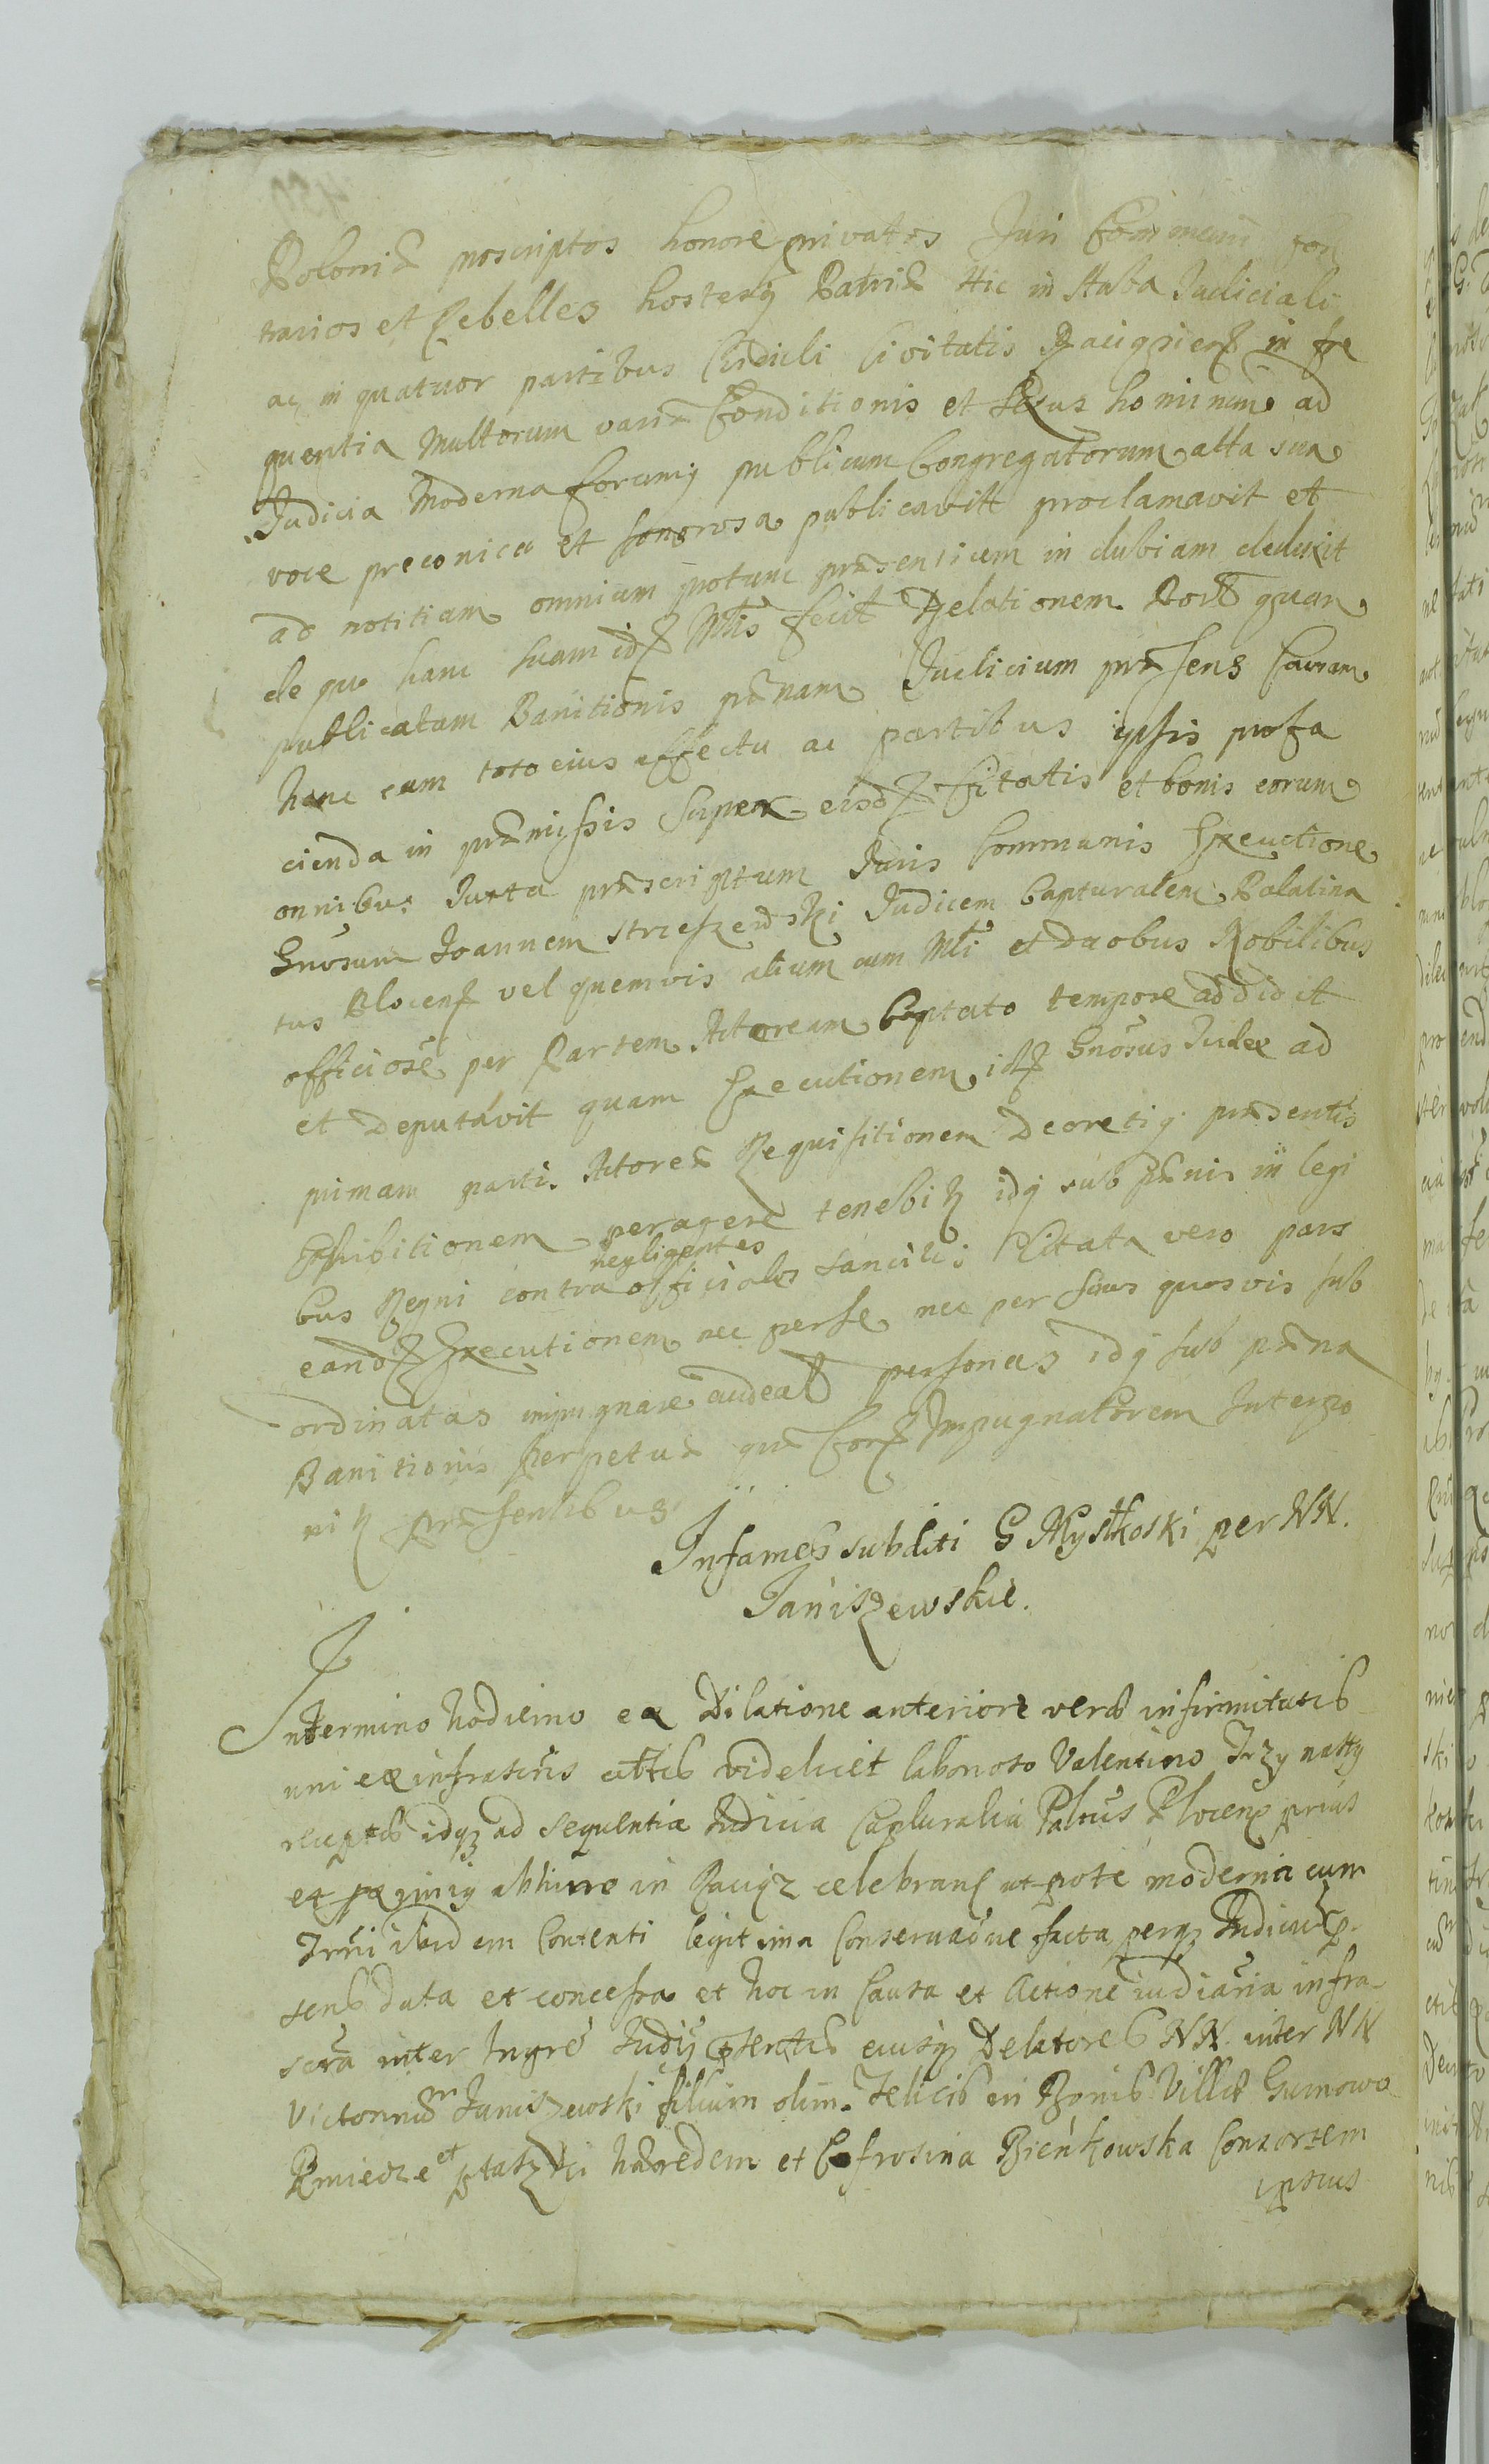 Poloniæ proscriptos honore privatos Juri Communi con
trarios et Rebelles hostesq Patriæ Hic in staba Judiciali
ac in quatuor partibus Circuli Civitatis Raciąziens in fre
quentia Multorum variæ Conditionis et sexus hominum ad
Judicia Moderna forumq publicum Congregatorum alta sua
voce preconica et sonorosa publicavit proclamavit et
ad notitiam omnium præsentium in dubiam deduxit
de quo hanc suam idz Mtis fecit Relationem Post quam
publicatam Banitionis pœnam Judicium præsens Causam
hanc cum toto eius effectu ac partibus ipsis profa
cienda in præmissis super eisdz Citatis et bonis eorum
omnibus Juxta præscriptum Juris Communis Executione
Gnosum Joannem Judicem Capturalem Palatina
tus Plocens vel quemvis alium cum Mtri et duobus Nobilibus
officiose per Partem Actoream Captato tempore addidit
et Deputavit quam Executionem idz Gnosus Judex ad
primam parti Actoreæ Requisitionem Decretiq præsentis
Exhibitionem peragere tenebitur idq sub pœnis in legi
bus Regni contra negligentes officiales sancitis Citata vero pars
eandz Executionem nec per se nec per suas quasvis sub
ordinatas impugnare audeat personas idq sub pœna
Banitionis perpetuæ quæ Impugnatorem Interpo
nitur præsentibus
Infames subditi G Mystkoski per NN.
Janiszewskie.
In termino hodierno ex Dilatione anteriore veræ infirmitatis
uni ex infrascris videlicet laborioso Valentino
receptæ idqz ad sequentia Judicia Capturalia Paltus Plocens prius
et abhinc in Raciąz celebran ut pote moderna cum
Trni ibidem Contenti legitima Conservaõne facta perqz Judiciu p
sens data et concessa et hoc in Causa et Actione iudiciaria infra
scra inter Judij psentis eiusqz Delatores NN. inter NN
Victorinum Janiszewski filium olim Felicis in Bonis Villæ Gumowo
et hæredem et Eufrosina Bieńkowska Consortem
ipsius